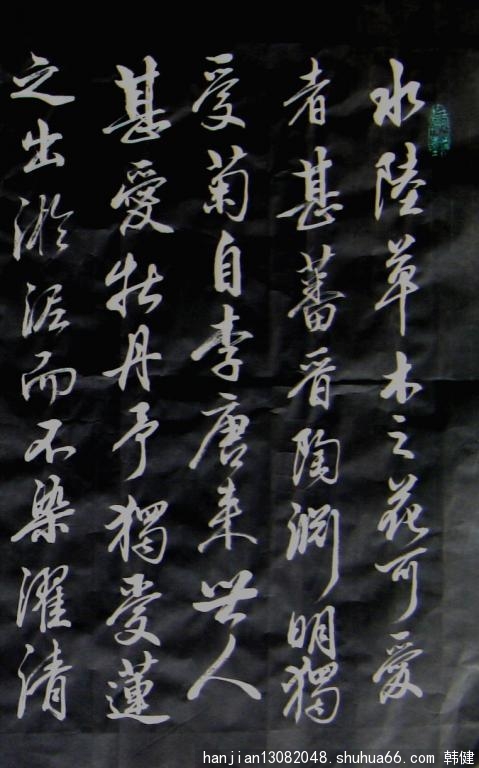 水陸草木之花可愛
者甚蕃晋陶渊明獨
愛菊自李唐来世人
甚愛牡丹予獨愛蓮
之出淤泥而不染濯清
hanjian13082048.shuhua66.com 韩健